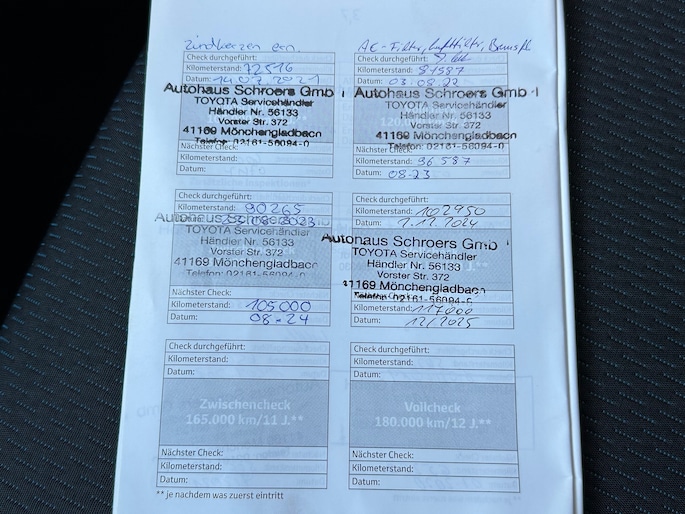 Zündkerzen ern.
Check durchgeführt:
Kilometerstand: 72516
Datum: 14.07.2021
Autohaus Schroers Gmb
TOYOTA Servicehändler
Händler Nr. 56133
Vorster Str. 372
41169 Mönchengladbach
Telefon: 02161-56094-0
Nächster Check:
Kilometerstand:
Datum:
AC-Filter, Luftfilter, Bremsfl
Check durchgeführt:
Kilometerstand: 81587
Datum: 03.08.22
Autohaus Schroers Gmb
TOYOTA Servicehändler
Händler Nr. 56133
Vorster Str. 372
41169 Mönchengladbach
Telefon: 02161-56094-0
Nächster Check:
Kilometerstand: 96587
Datum: 08.23
Check durchgeführt:
Kilometerstand: 90265
Autohaus Schroers
TOYOTA Servicehändler
Händler Nr. 56133
Vorster Str. 372
41169 Mönchengladbach
Telefon: 02161-56094-0
Nächster Check:
Kilometerstand: 105000
Datum: 08-24
Check durchgeführt:
Kilometerstand: 102950
Datum: 2024
Autohaus Schroers Gmb
TOYOTA Servicehändler
Händler Nr. 56133
Vorster Str. 372
41169 Mönchengladbach
Telefon: 02161-56094-0
Kilometerstand: 117000
Datum: 12/2025
Check durchgeführt:
Kilometerstand:
Datum:
Zwischencheck
165.000 km/11 J.**
Nächster Check:
Kilometerstand:
Datum:
Check durchgeführt:
Kilometerstand:
Datum:
Vollcheck
180.000 km/12 J.**
Nächster Check:
Kilometerstand:
Datum:
** je nachdem was zuerst eintritt